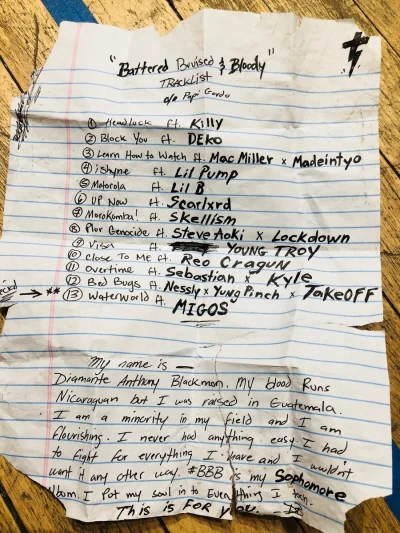 "Battered Bruised & Bloody"
TRACKLIST
c/o Papi Gordo
① Headlock ft. Killy
② Block You ft. DEKO
③ Learn How to Watch ft. Mac Miller x Madeintyo
④ iShyne ft. Lil Pump
⑤ Motorola ft. Lil B
⑥ UP NOW ft. Scarlxrd
⑦ MoroKomba! ft. Skellism
⑧ Plur Genocide ft. Steve Aoki x Lockdown
⑨ Visa ft. YOUNG TROY
⑩ Close To ME ft. Reo Cragun
⑪ Overtime ft. Sebastian x Kyle
⑫ Bed Bugs ft. Nessly x Yung Pinch x TakeOFF
→ ** ⑬ WaterWorld ft.
MIGOS
My name is —
Diamante Anthony Blackmon. My blood Runs
Nicaraguan but I was raised in Guatemala.
I am a minority in my field and I am
flourishing. I never had anything easy. I had
to fight for everything I have and I wouldn't
want it any other way. #BBB is my Sophomore
Album. I Put my soul in to Everything I touch.
This is FOR you.